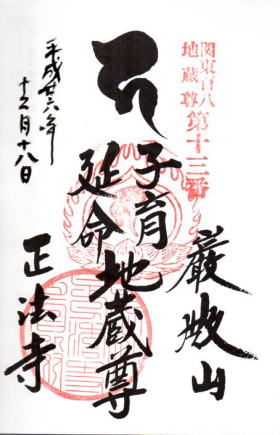 関東百八
地蔵尊
第十三番
巖殿山
子育
延命地蔵尊
正法寺
平成廿六年
十二月十八日